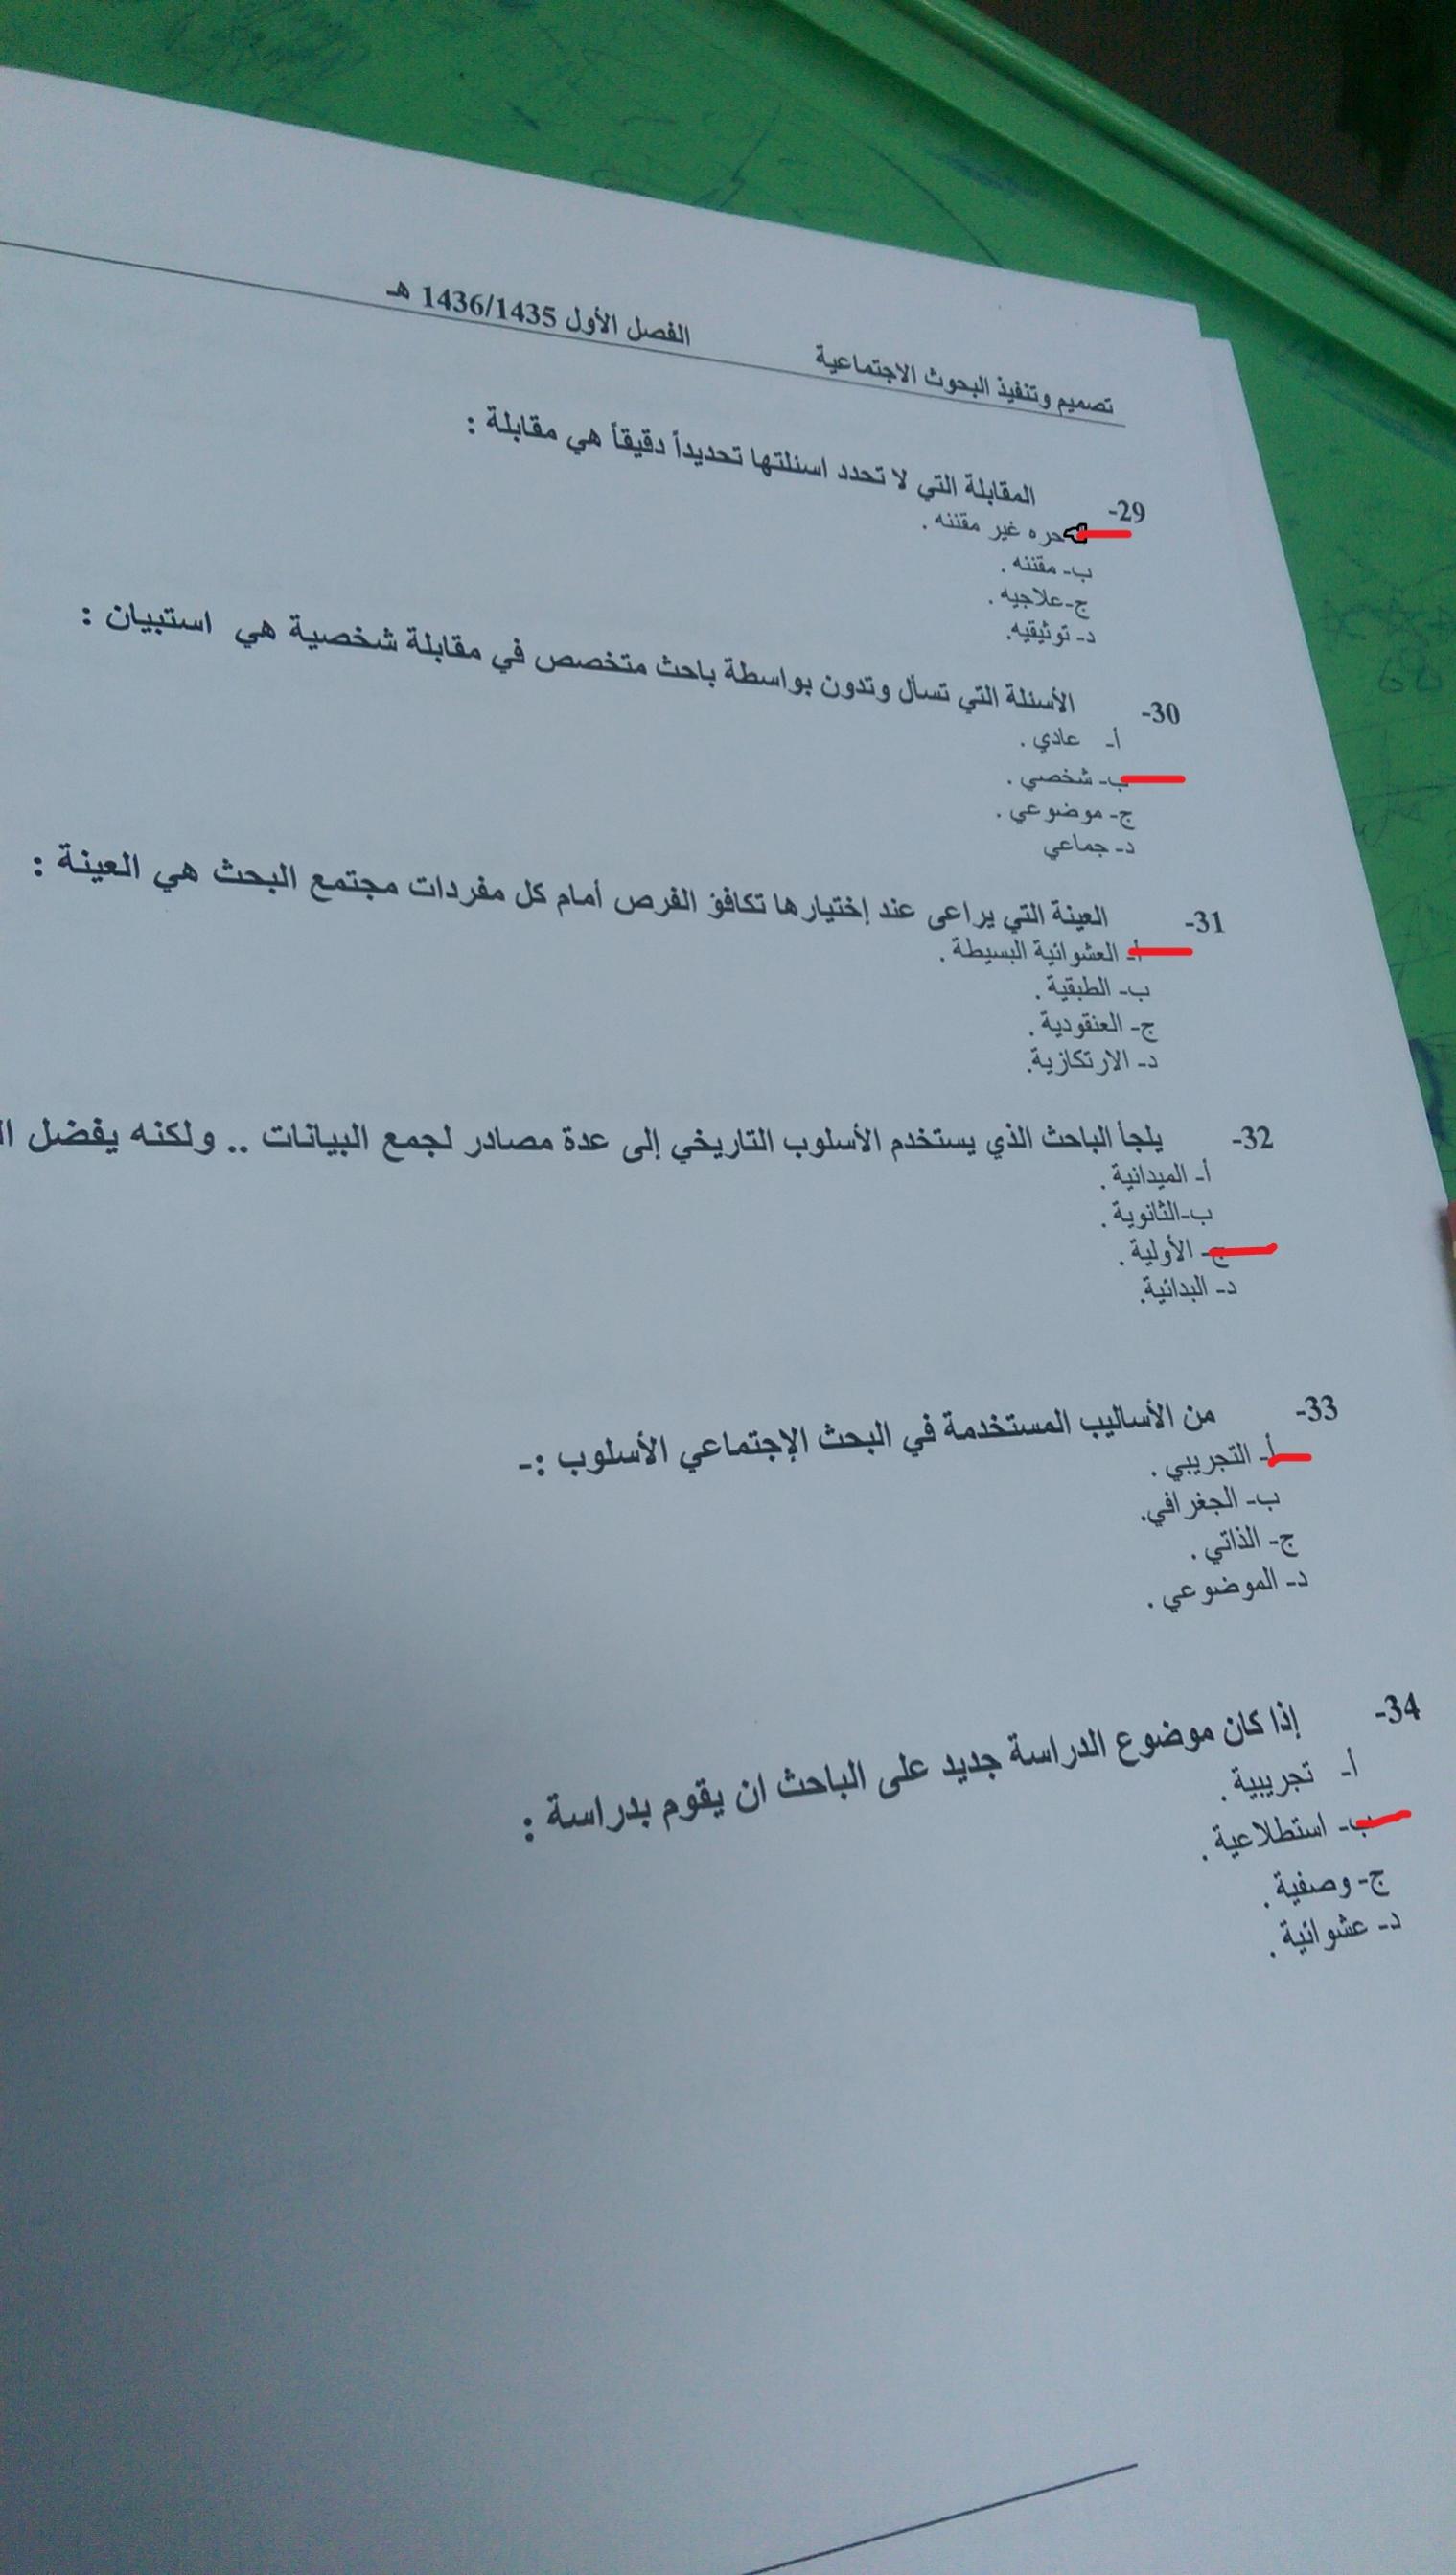 تصميم وتنفيذ البحوث الاجتماعية الفصل الأول 1436/1435 هـ
29- المقابلة التي لا تحدد اسئلتها تحديداً دقيقاً هي مقابلة :
حره غير مقننه .
ب- مقننه .
ج-علاجيه .
د- توثيقيه.
30- الأسئلة التي تسأل وتدون بواسطة باحث متخصص في مقابلة شخصية هي استبيان :
أ- عادي .
ب- شخصي .
ج- موضوعي .
د- جماعي
31- العينة التي يراعى عند إختيارها تكافؤ الفرص أمام كل مفردات مجتمع البحث هي العينة :
أ- العشوائية البسيطة .
ب- الطبقية .
ج- العنقودية .
د- الارتكازية.
32- يلجأ الباحث الذي يستخدم الأسلوب التاريخي إلى عدة مصادر لجمع البيانات .. ولكنه يفضل
أ- الميدانية .
ب-الثانوية .
ج- الأولية .
د- البدائية.
33- من الأساليب المستخدمة في البحث الإجتماعي الأسلوب :-
أ- التجريبي .
ب- الجغرافي.
ج- الذاتي .
د- الموضوعي .
34- إذا كان موضوع الدراسة جديد على الباحث ان يقوم بدراسة :
أ- تجريبية .
ب- استطلاعية .
ج- وصفية .
د- عشوائية .